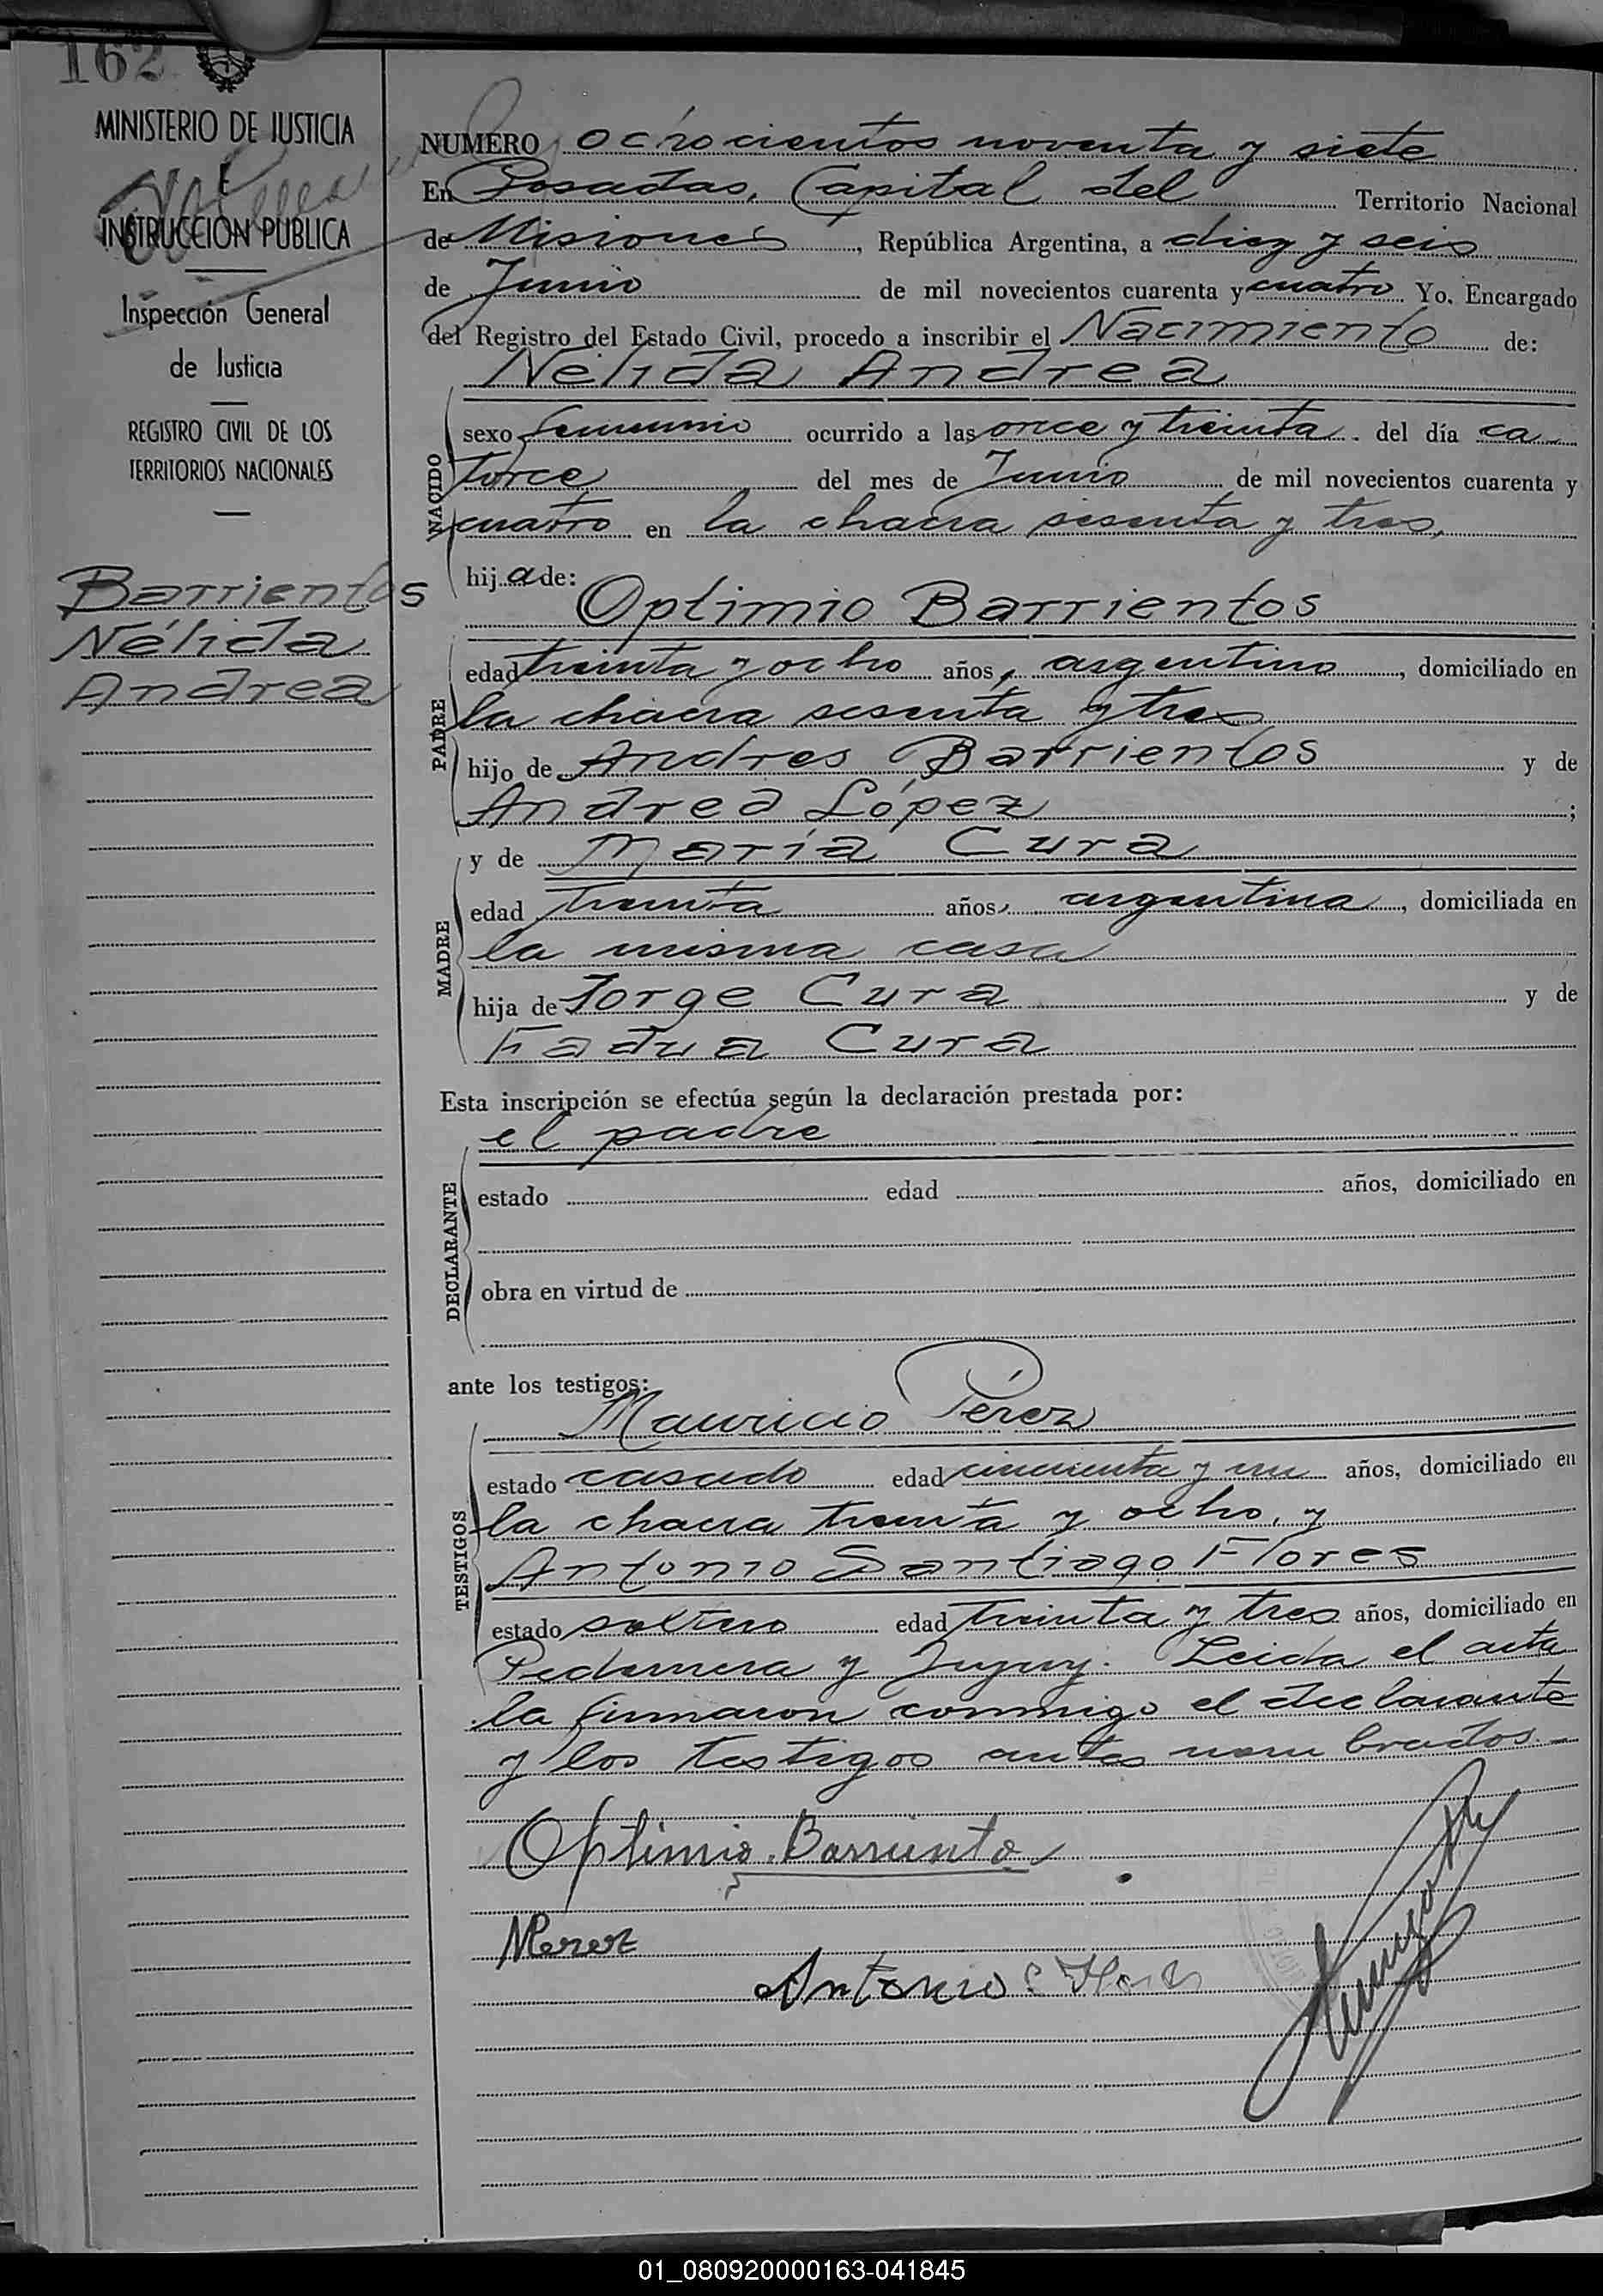 162
MINISTERIO DE JUSTICIA
E
INSTRUCCION PUBLICA
Inspección General
de Justicia
REGISTRO CIVIL DE LOS
TERRITORIOS NACIONALES
Barrientos
Nélida
Andrea
NUMERO ochocientos noventa y siete
En Posadas, Capital del Territorio Nacional
de Misiones, República Argentina, a diez y seis
de Junio de mil novecientos cuarenta y cuatro Yo, Encargado
del Registro del Estado Civil, procedo a inscribir el Nacimiento de:
Nélida Andrea
NACIDO
sexo femenino ocurrido a las once y treinta. del día ca
torce del mes de Junio de mil novecientos cuarenta y
cuatro en la chacra sesenta y tres,
hij a de:
Optimio Barrientos
PADRE
edad treinta y ocho años, argentino, domiciliado en
la chacra sesenta y tres
hijo de Andres Barrientos y de
Andrea López ;
MADRE
y de María Cura
edad treinta años, argentina, domiciliada en
la misma casa
hija de Jorge Cura y de
Fadua Cura
Esta inscripción se efectúa según la declaración prestada por:
el padre
DECLARANTE
estado edad años, domiciliado en
obra en virtud de
ante los testigos:
Mauricio Pérez
TESTIGOS
estado casado edad cincuenta y un años, domiciliado en
la chacra treinta y ocho, y
Antonio Santiago Flores
estado soltero edad treinta y tres años, domiciliado en
Pedernera y Jujuy. Leida el acta
la firmaron conmigo el declarante
y los testigos antes nombrados.—
Optimio Barrientos
MPerez
Antonio S Flores
01_080920000163-041845